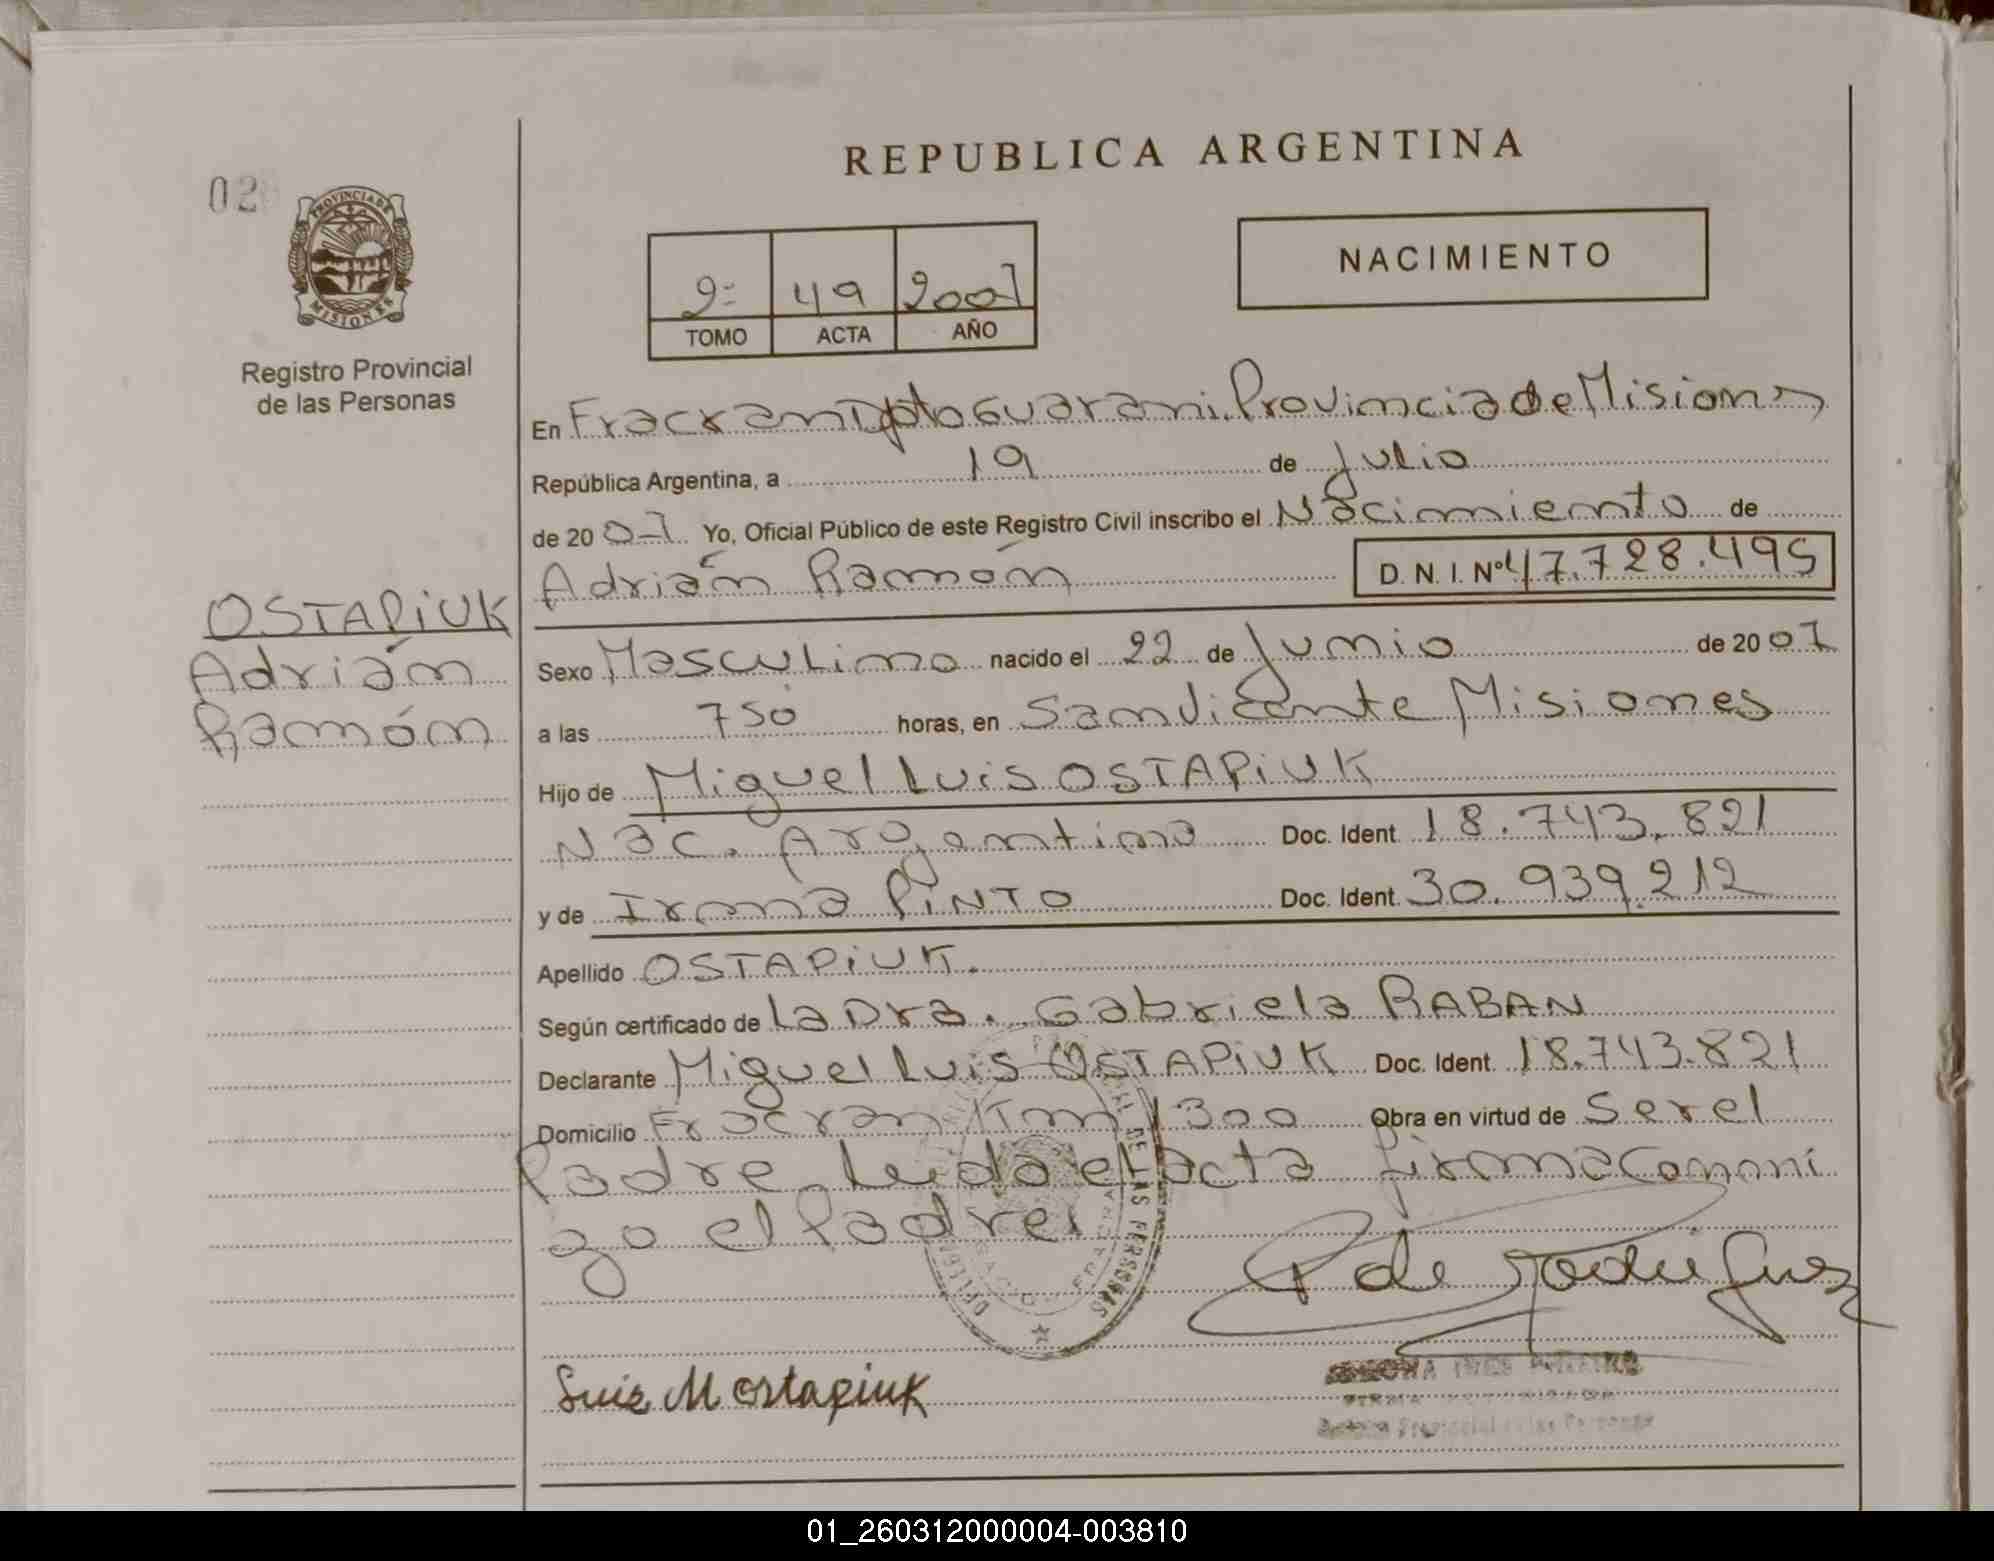 REPUBLICA ARGENTINA
02
PROVINCIA DE
MISIONES
Registro Provincial
de las Personas
NACIMIENTO
2º 49 2007
TOMO ACTA AÑO
En Fracran Dpto Guarani. Provincia de Misiones
República Argentina, a 19 de Julio
de 20 07 Yo, Oficial Público de este Registro Civil inscribo el Nacimiento de
Adrián Ramón D. N. I. Nº 47.728.495
OSTAPiUK
Adrián
Ramón
Sexo Masculino nacido el 22 de Junio de 20 07
a las 750 horas, en San Vicente Misiones
Hijo de Miguel Luis OSTAPiUK
Nac. Argentina Doc. Ident. 18.743.821
y de Irma PiNTO Doc. Ident. 30.939.212
Apellido OSTAPiUK.
Según certificado de La Dra. Gabriela RABAN
Declarante Miguel Luis OSTAPiUK Doc. Ident. 18.743.821
Domicilio Fracran Km 1300 Obra en virtud de Ser el
Padre Leida el acta firma Conmi
go el Padre.
DE LAS PERSONAS
FRACRAN
P de Rodriguez
Luis M Ostapiuk
01_260312000004-003810